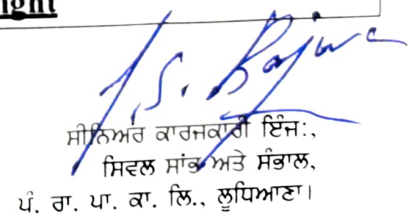 ight
J.S. Bajwa
ਸੀਨਿਅਰ ਕਾਰਜਕਾਰੀ ਇੰਜ:,
ਸਿਵਲ ਸਾਂਭ ਅਤੇ ਸੰਭਾਲ,
ਪੰ. ਰਾ. ਪਾ. ਕਾ. ਲਿ., ਲੂਧਿਆਣਾ।